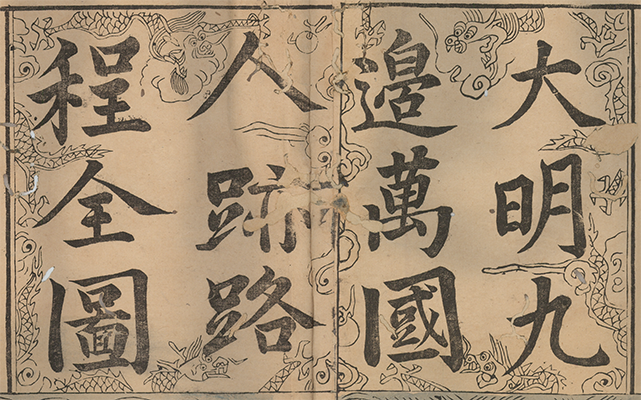 大明九
邊萬國
人跡路
程全圖